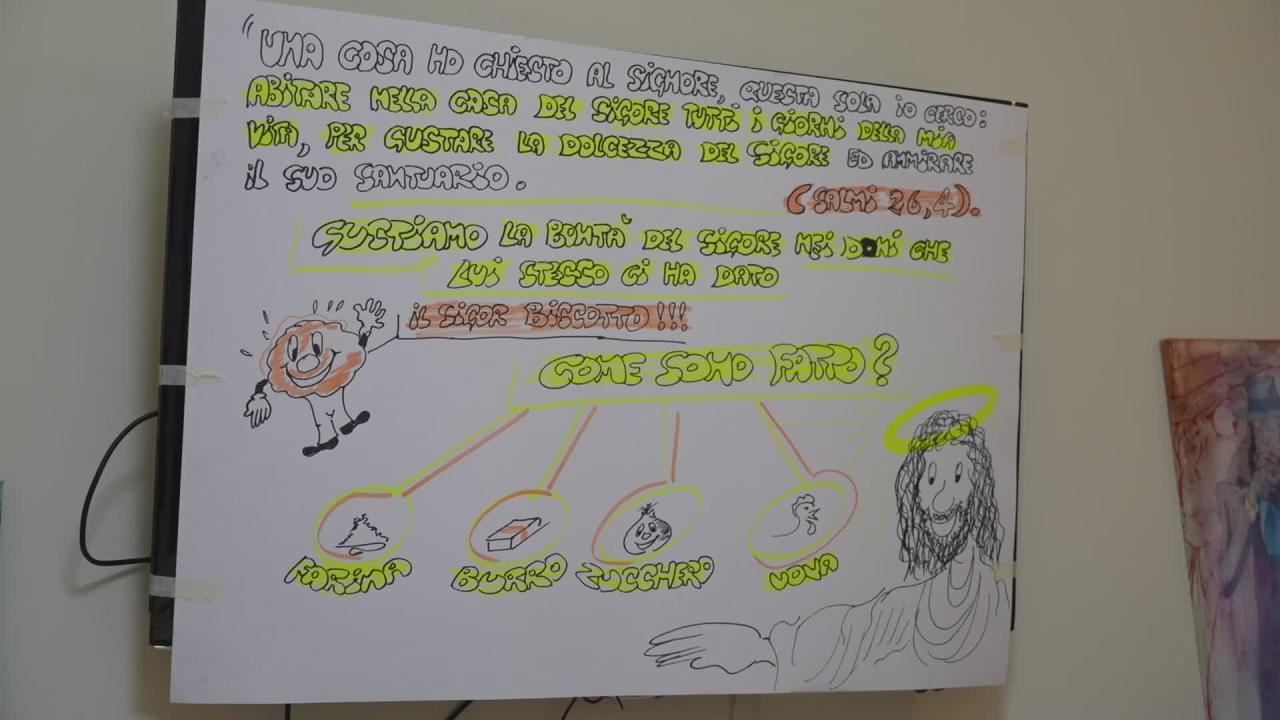 "UNA COSA HO CHIESTO AL SIGNORE, QUESTA SOLA IO CERCO:
ABITARE NELLA CASA DEL SIGORE TUTTI I GIORNI DELA MIA
VITA, PER GUSTARE LA DOLCEZZA DEL SIGORE ED AMMIRARE
IL SUO SANTUARIO.
(SALMI 26,4).
GUSTIAMO LA BONTÀ DEL SIGORE NEI DONI CHE
LUI STESSO CI HA DATO
IL SIGOR BISCOTTO!!!
COME SONO FATTO?
FARINA BURRO ZUCCHERO UOVA